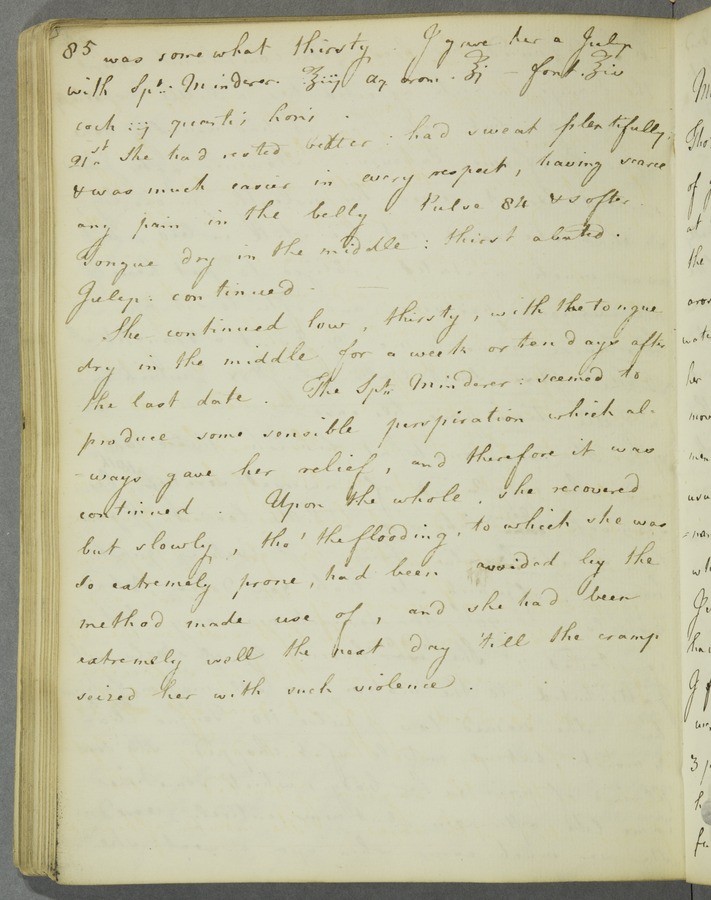 85 was some what thirsty. I gave her a Julep
with Spt: Minderer. ʒiij aq arom. ʒj – font. ʒiv
coch iij quartis horis.
21st She had rested better: had sweat plentifully
& was much easier in every respect, having scarce
any pain in the belly Pulse 84 & softer.
Tongue dry in the middle: thirst abated.
Julep: continued.
She continued low, thirsty, with the tongue
dry in the middle for a week or ten days after
the last date. The Spt: Minderer: seemed to
produce some sensible perspiration which al-
-ways gave her relief, and therefore it was
continued. Upon the whole, she recovered
but slowly, tho' the flooding, to which she was
so extremely prone, had been avoided by the
method made use of, and she had been
extremely well the next day 'till the cramp
seized her with such violence.